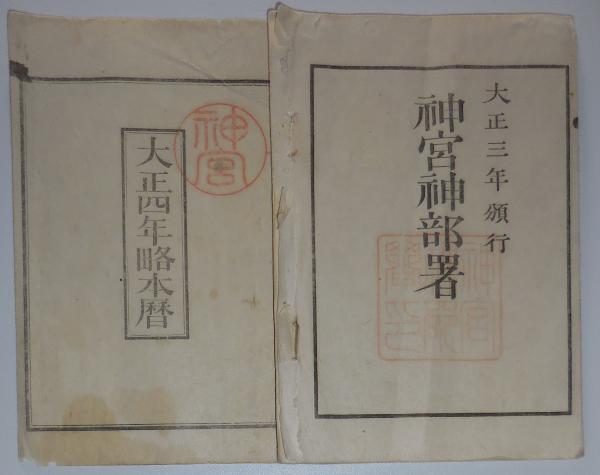 大正三年頒行
神宮神部署
神宮
大正四年略本暦